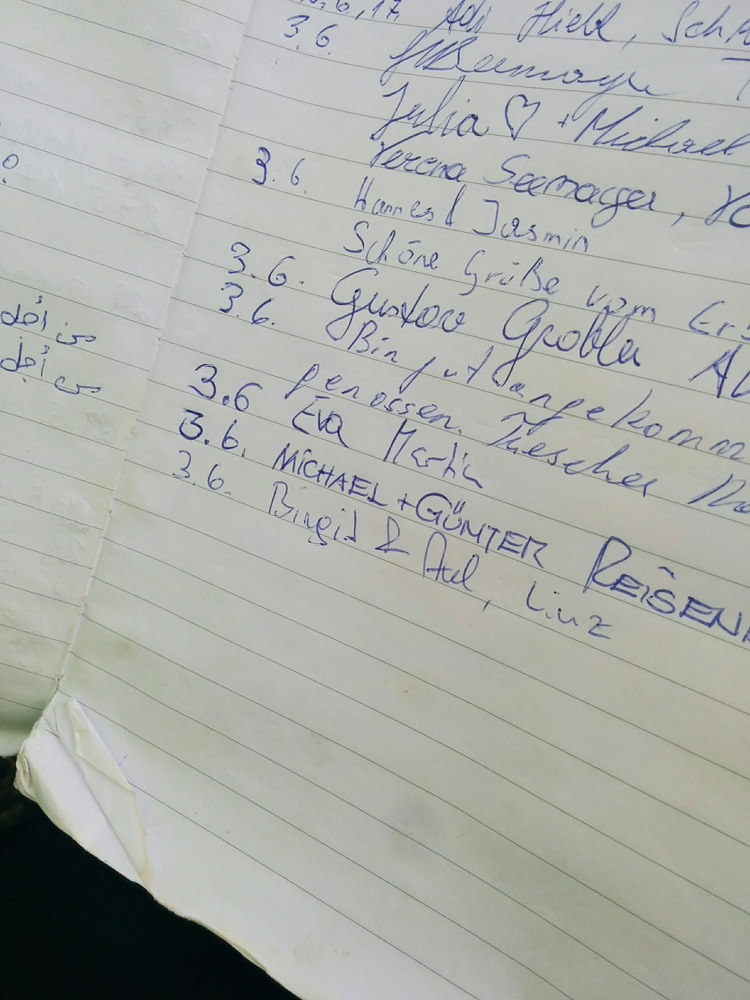 من أجل
من أجل
.6.17. Adi Hiebl, Sch
3.6.
Julia ♡ + Michael
Verena Seemayer,
3.6. Hannes & Jasmin
Schöne Grüße vom
3.6. Gustav Grobler
3.6. Bin gut angekomm
genossen.
3.6 Eva Martin
3.6. MICHAEL + GÜNTER REISEN
3.6. Birgit & Adl, Linz